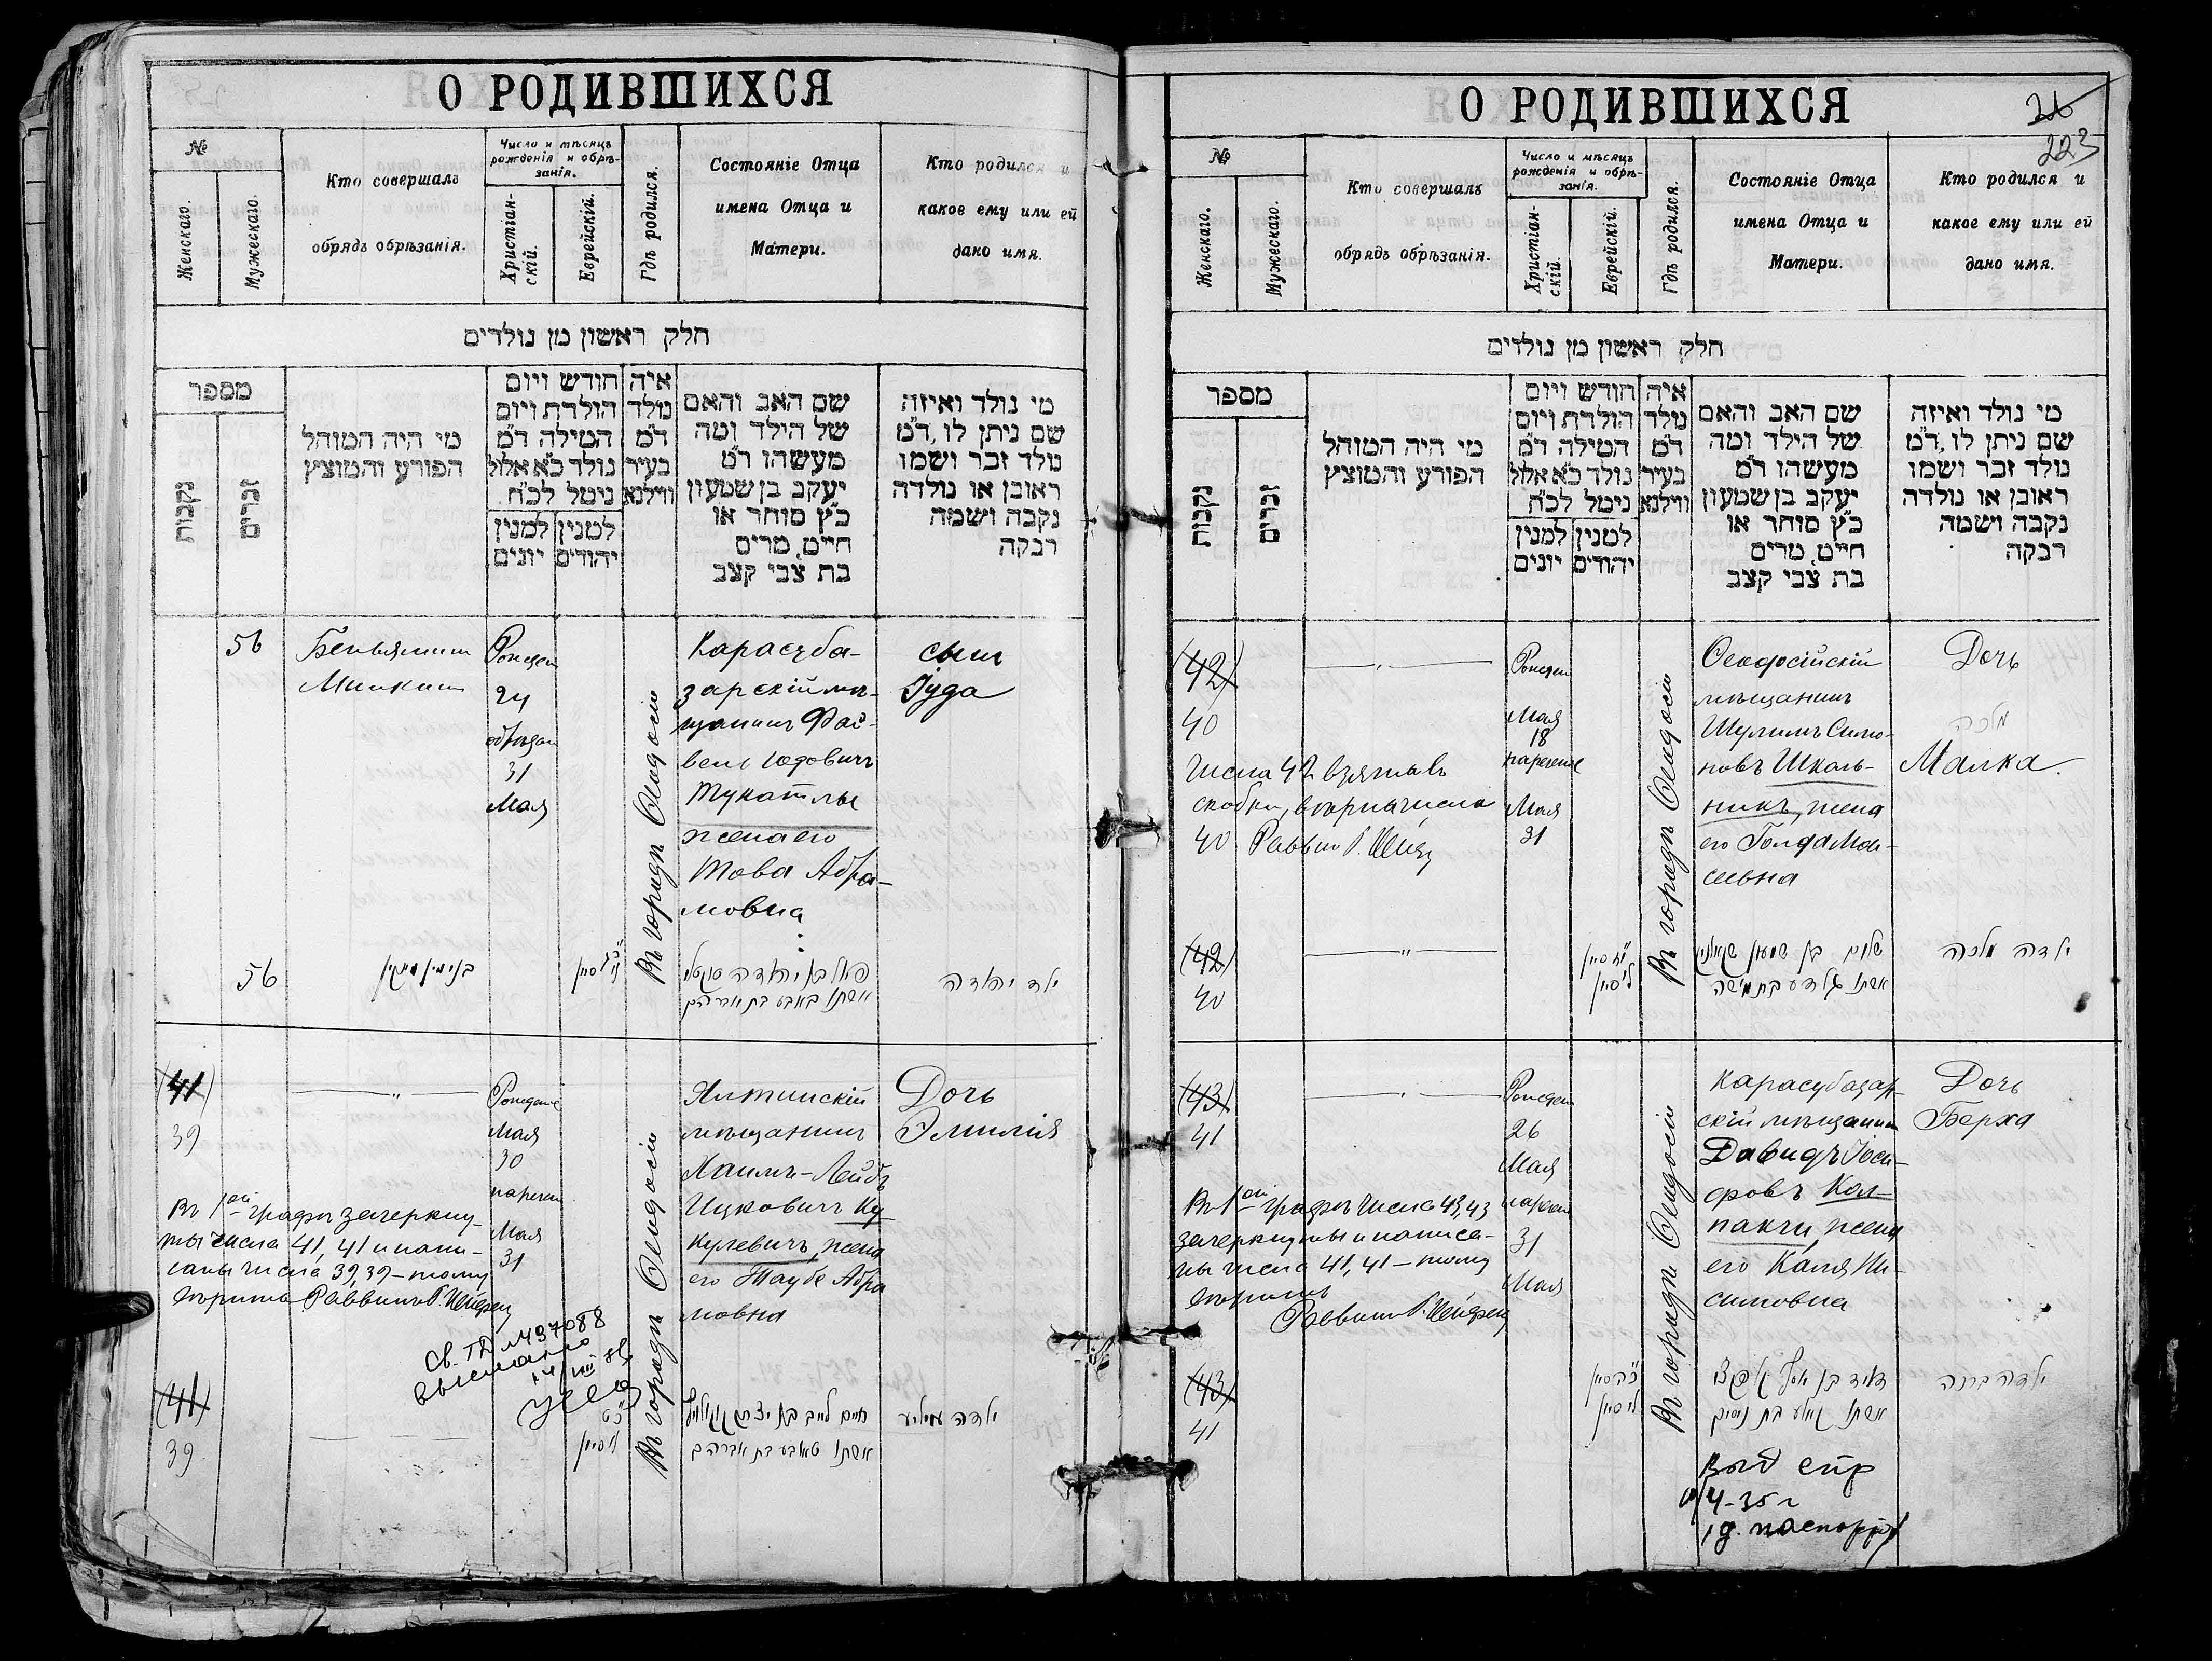 О РОДИВШИХСЯ
№
Женскаго.
Мужескаго.
Кто совершалъ
обрядъ обрѣзанія.
Число и мѣсяцъ
рожденія и обрѣ-
занія.
Христіан-
скій.
Еврейскій.
Гдѣ родился.
Состояніе Отца
имена Отца и
Матери.
Кто родился и
какое ему или ей
дано имя.
חלק ראשון מן נולדים
מספר
נקבות
זכרים
מי היה המוהל
הפורע והמוצץ
חודש ויום
הולדת ויום
המילה ד"מ
נולד כ"א אלול
נימל לכ"ח
למנין
יהודים
למנין
יונים
איה
נולד
ד"מ
בעיר
ווילנא
שם האב והאם
של הילד ומה
מעשהו ד"מ
יעקב בן שמעון
כ"ץ סוחר או
חייט, מרים
בת צבי קצב
מי נולד ואיזה
שם ניתן לו, ד"מ
נולד זכר ושמו
ראובן או נולדה
נקבה ושמה
רבקה
56
Беньяминъ
Минкинъ
Рожден
24
обрѣзан
31
Мая
Въ городѣ Ѳеодосіи
Карасуба-
зарскій мѣ-
щанинъ Фай-
вель Юдовичъ
Тукатлы
жена его
Това Абра-
мовна
сынъ
Іуда
56
בנימין מינקין
סיון
ילד יהודה
41
39
Рожденіе
Мая
30
наречен
Мая
31
Въ городѣ Ѳеодосіи
Ялтинскій
мѣщанинъ
Хаимъ-Лейбъ
Ицковичъ Ку-
кулевичъ, жена
его Таубе Абра
мовна
Дочь
Эмилія
Въ 1ой графѣ зачеркну-
ты числа 41, 41 и напи-
саны числа 39, 39 – тому
вѣрить Раввинъ
св. ТД № 37088
выслано
41
39
חיים לייב בן יצחק
אשתו טאובע בת אברהם
ילדה עמיליע
О РОДИВШИХСЯ
26
223
№
Женскаго.
Мужескаго.
Кто совершалъ
обрядъ обрѣзанія.
Число и мѣсяцъ
рожденія и обрѣ-
занія.
Христіан-
скій.
Еврейскій.
Гдѣ родился.
Состояніе Отца
имена Отца и
Матери.
Кто родился и
какое ему или ей
дано имя.
חלק ראשון מן נולדים
מספר
נקבות
זכרים
מי היה המוהל
הפורע והמוצץ
חודש ויום
הולדת ויום
המילה ד"מ
נולד כ"א אלול
נימל לכ"ח
למנין
יהודים
למנין
יונים
איה
נולד
ד"מ
בעיר
ווילנא
שם האב והאם
של הילד ומה
מעשהו ד"מ
יעקב בן שמעון
כ"ץ סוחר או
חייט, מרים
בת צבי קצב
מי נולד ואיזה
שם ניתן לו, ד"מ
נולד זכר ושמו
ראובן או נולדה
נקבה ושמה
רבקה
(42)
40
Рожден
Мая
18
нареченіе
Мая
31
Въ городѣ Ѳеодосіи
Ѳеодосійскій
мѣщанинъ
Шулимъ Симо-
новъ Школь-
никъ, жена
его Голда Мои-
сеевна
Дочь
מלכה
Малка.
Числа 42 взятыя въ
скобки, вѣрна числа
40 Раввинъ
(42)
40
סיון
סיון
שלום בן שמעון שקאלניק
אשתו גאלדע בת משה
ילדה מלכה
(43)
41
Рожден
26
Мая
наречен
31
Мая
Въ городѣ Ѳеодосіи
Карасубазар-
скій мѣщанинъ
Давидъ Іоси-
фовъ Кол-
пакчи, жена
его Каля Ни-
симовна
Дочь
Берха
Въ 1ой графѣ числа 43, 43
зачеркнуты и написа-
ны числа 41, 41 – тому
вѣрить
Раввинъ
(43)
41
סיון
סיון
דוד בן יוסף
ילדה ברכה
Выд спр
4-35 г
1 д. паспорта